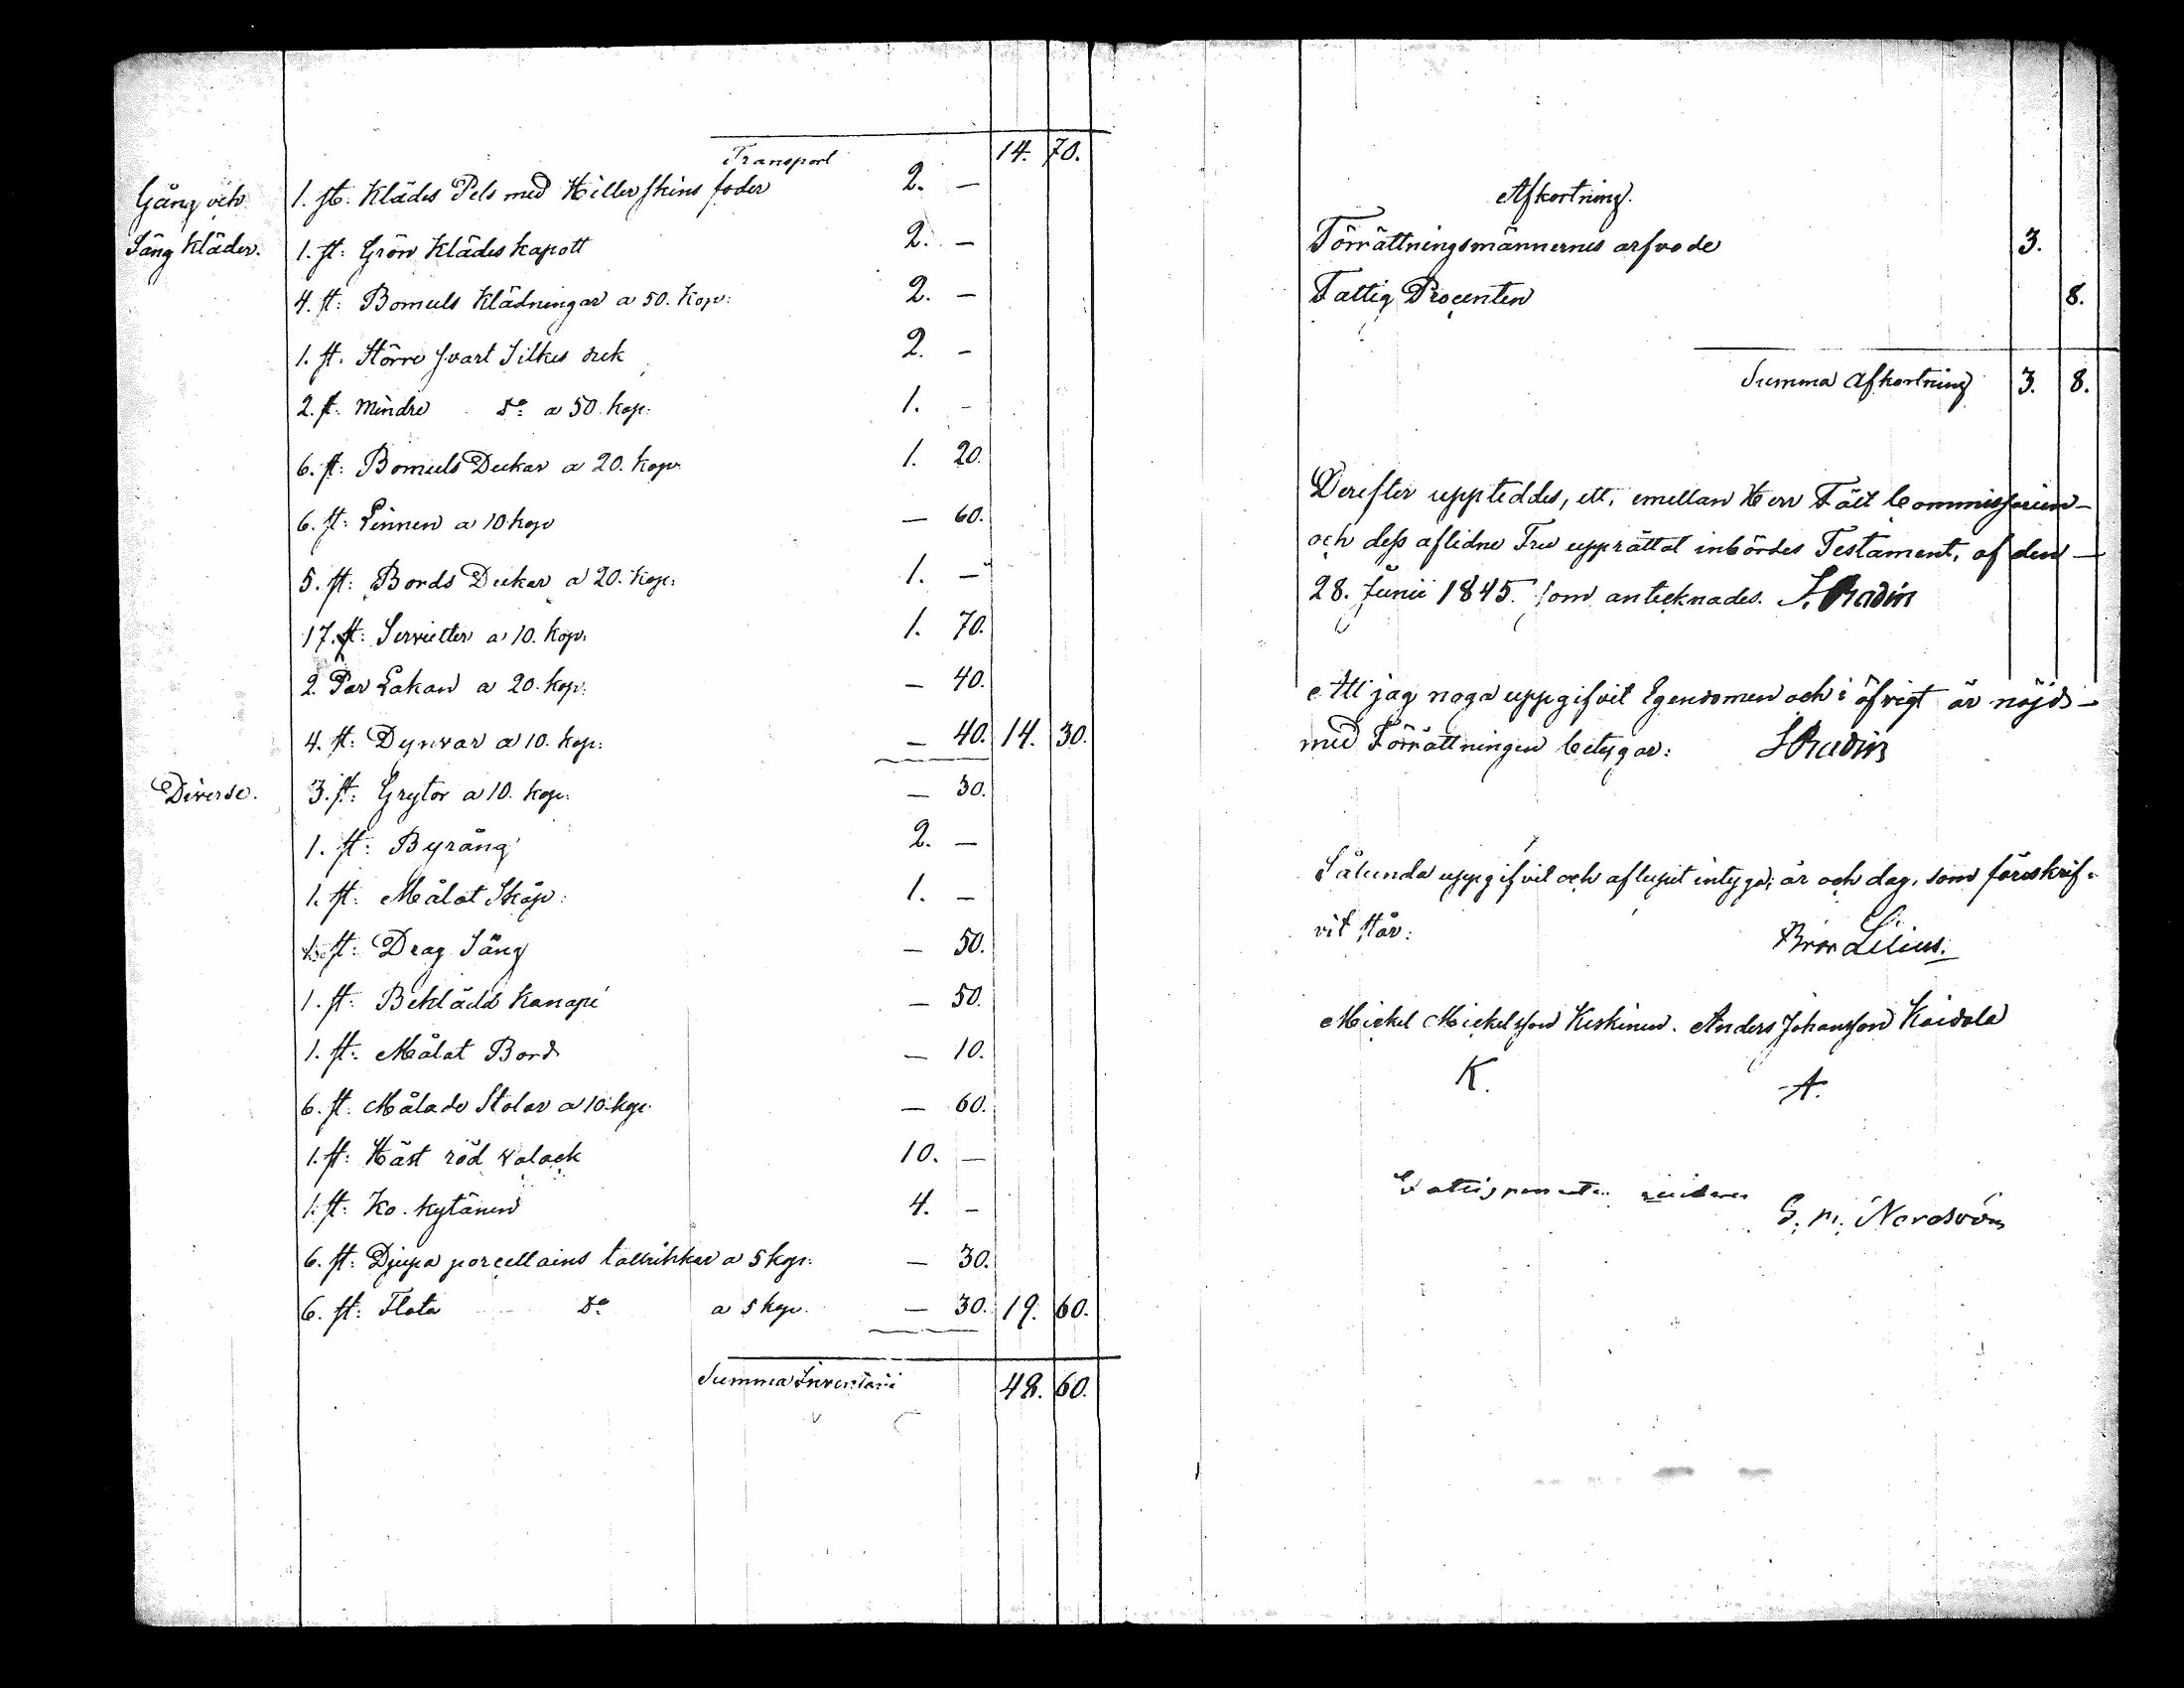 Transport 14. 70.
Gång och 1. st. Klädes Pels med Hillerskins foder 2. —
Säng Kläder. 1. st: Grön Klädes kapott 2. —
4. st: Bomuls Klädningar a 50. Kop: 2. —
1. st. Större svart Silkes duk 2. —
2. st. mindre Do a 50. kop: 1. —
6. st: Bomuls Dukar a 20. kop. 1. 20.
6. st: Linnen a 10 kop — 60.
5. st: Bords Dukar a 20. kop: 1. —
17. st: Servietter a 10. kop. 1. 70.
2. Par Lakan a 20. kop. — 40.
4. st: Dynvar a 10. kop: — 40. 14. 30.
Diverse. 3. st: Grytor a 10. kop. — 30.
1. st: Byrång 2. —
1. st: Målat Skåp: 1. —
1. st: Drag Säng — 50.
1. st: Beklädd Kanapé — 50.
1. st: Målat Bord — 10.
6. st. Målade Stolar a 10. kop. — 60.
1. st: Häst röd valack 10. —
1. st: Ko. kytänen 4. —
6. st: Djupa porcellains tallrikkar a 5 kop: — 30.
6. st: Flata Do a 5 kop. — 30. 19. 60.
Summa Inventarii 48. 60.
Afkortning.
Förrättningsmännernes arfvode 3.
Fattig Procenten 8.
Summa Afkortning 3. 8.
Derefter uppteddes, ett, emellan Herr Fält Commissarien —
och dess aflidne Fru upprättat inbördes Testament, af den —
28. Junii 1845. som antecknades.
Att jag noga uppgifvit Egendomen och i öfrigt är nöjd —
med Förrättningen betygar:
Sålunda uppgifvit och aflupit intyga; år och dag, som föreskrif-
vit står:
Bror Lilius.
Mickel Mickelsson Keskinen. Anders Johansson Kaidala
K. A.
G. M. Nordström